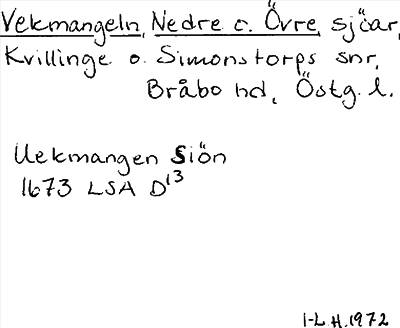 Vekmangeln, Nedre o. Övre, sjöar,
Kvillinge o. Simonstorps snr,
Bråbo hd, Östg. l.
Uekmangen Siön
1673 LSA D¹³
I-L H. 1972